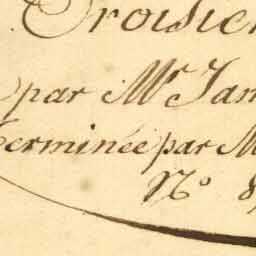 Troisie
par Mr Jam
terminée par M
No 8